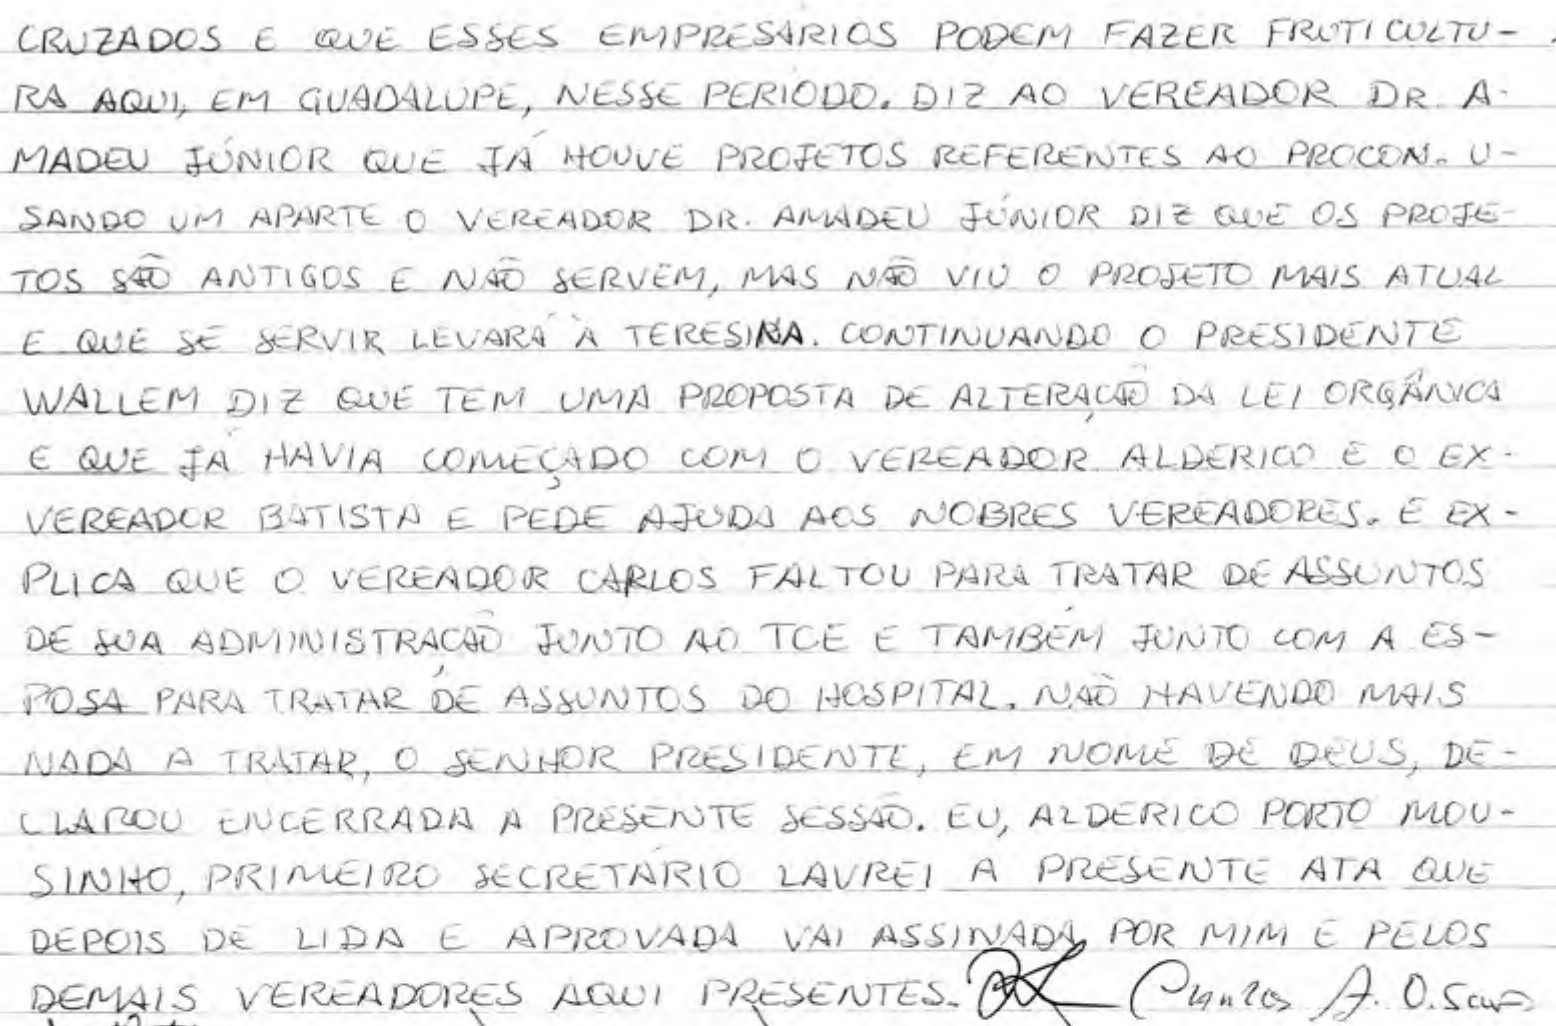 CRUZADOS E QUE ESSES EMPRESÁRIOS PODEM FAZER FRUTICULTU-
RA AQUI, EM GUADALUPE, NESSE PERÍODO. DIZ AO VEREADOR DR. A-
MADEU JÚNIOR QUE JÁ HOUVE PROJETOS REFERENTES AO PROCON. U-
SANDO UM APARTE O VEREADOR DR. AMADEU JÚNIOR DIZ QUE OS PROJE-
TOS SÃO ANTIGOS E NÃO SERVEM, MAS NÃO VIU O PROJETO MAIS ATUAL
E QUE SE SERVIR LEVARÁ À TERESINA. CONTINUANDO O PRESIDENTE
WALLEM DIZ QUE TEM UMA PROPOSTA DE ALTERAÇÃO DA LEI ORGÂNICA
E QUE JÁ HAVIA COMEÇADO COM O VEREADOR ALDERICO E O EX-
VEREADOR BATISTA E PEDE AJUDA AOS NOBRES VEREADORES. E EX-
PLICA QUE O VEREADOR CARLOS FALTOU PARA TRATAR DE ASSUNTOS
DE SUA ADMINISTRAÇÃO JUNTO AO TCE E TAMBÉM JUNTO COM A ES-
POSA PARA TRATAR DE ASSUNTOS DO HOSPITAL. NÃO HAVENDO MAIS
NADA A TRATAR, O SENHOR PRESIDENTE, EM NOME DE DEUS, DE-
CLAROU ENCERRADA A PRESENTE SESSÃO. EU, ALDERICO PORTO MOU-
SINHO, PRIMEIRO SECRETÁRIO LAVREI A PRESENTE ATA QUE
DEPOIS DE LIDA E APROVADA VAI ASSINADA POR MIM E PELOS
DEMAIS VEREADORES AQUI PRESENTES.